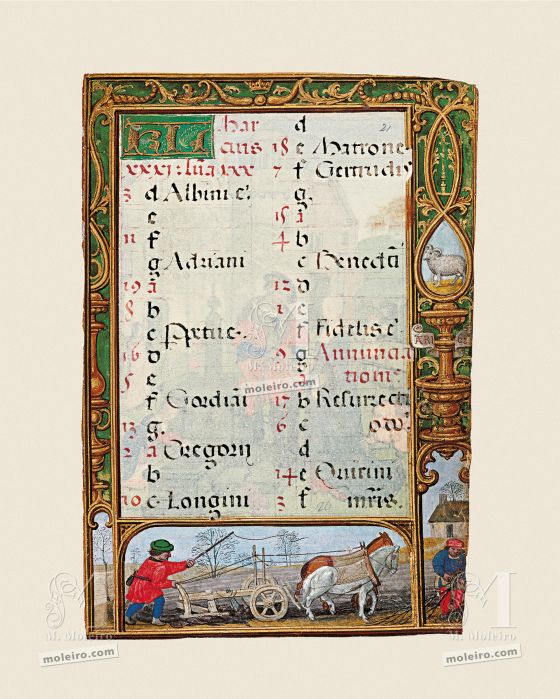 KL Mar
cius
XXXI: lũa xxx
3 d Albini e.
e
11 f
g Adriani
19 ã
8 b
c Ppetue.
16 d
5 e
f Gordiãi
13 g.
2 ã Gregorij
b
10 c Longini
21
d
18 e Matrone
7 f Gertrudis
g.
15 ã
4 b
c Benedcti
12 d
1 e
f Fidelis e.
9 g Annuncia
tionis
17 b Resurrecti
6 c
d
14 e Quirini
3 f mris.
ARI ES
M
M. Moleiro
moleiro.com
M
M. Moleiro
moleiro.com
M
M. Moleiro
moleiro.com